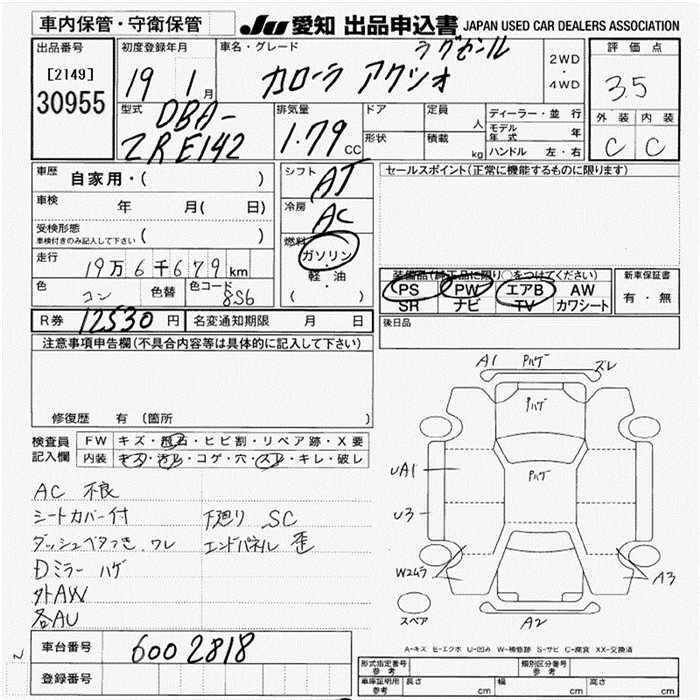 車内保管・守衛保管
JU 愛知 出品申込書 JAPAN USED CAR DEALERS ASSOCIATION
出品番号
[2149]
30955
初度登録年月
19 1 月
車名・グレード
ラグゼール
カローラ アクシオ
2WD
・
4WD
評 価 点
3.5
外 装 内 装
C C
型式
DBA-
ZRE142
排気量
1.79 CC
ドア
形状
定員 人
積載 kg
ディーラー・並 行
モデル年式 年
ハンドル 左・右
車歴 自家用・( )
車検 年 月( 日)
受検形態
車検付きのみ記入して下さい ( )
走行 19万6千679km
色 コン 色替 色コード 8S6
シフト AT
冷房 AC
燃料
ガソリン
軽 油
( )
セールスポイント(正常に機能するものに限ります)
装備品(純正品に限り○をつけてください)
PS PW エアB AW
SR ナビ TV カワシート
新車保証書
有・無
R券 12530 円 名変通知期限 月 日
後日品
注意事項申告欄(不具合内容等は具体的に記入して下さい)
修復歴 有 (箇所 )
検査員記入欄
FW キズ・飛石・ヒビ割・リペア跡・X要
内装 キズ・汚レ・コゲ・穴・スレ・キレ・破レ
AC 不良
シートカバー付 下廻り SC
ダッシュベタつき、ワレ エンドパネル 歪
Dミラー ハゲ
外AW
各AU
A1 Pハゲ ズレ
Pハゲ
Pハゲ
UA1
U3
W2ムラ
A3
スペア
A2
A-キズ E-エクボ U-凹み W-補修跡 S-サビ C-腐食 XX-交換済
車台番号 6002818
登録番号
形式指定番号 参考
類別区分番号 参考
車庫証明用 参考 長さ cm 幅 cm 高さ cm